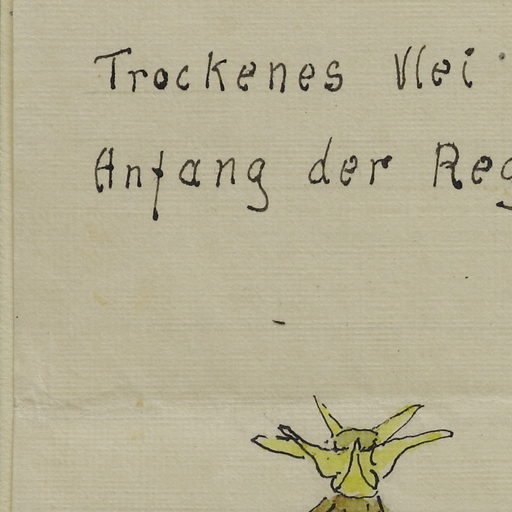 Trockenes Vlei
Anfang der Reg